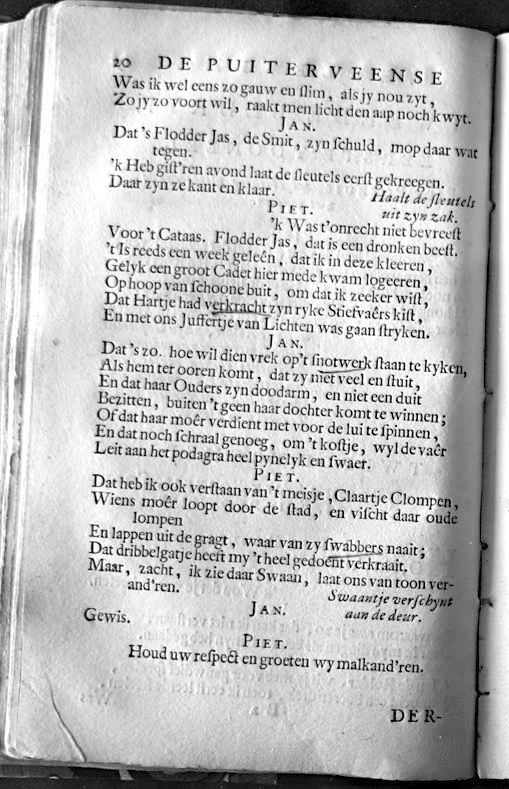 20 DE PUITERVEENSE
Was ik wel eens zo gauw en ſlim, als jy nou zyt,
Zo jy zo voort wil, raakt men licht den aap noch kwyt.
JAN.
Dat 's Flodder Jas, de Smit, zyn ſchuld, mop daar wat
tegen.
'k Heb giſt'ren avond laat de ſleutels eerſt gekreegen.
Daar zyn ze kant en klaar. Haalt de ſleutels
uit zyn zak.
PIET.
'k Was t'onrecht niet bevreeſt
Voor 't Cataas. Flodder Jas, dat is een dronken beeſt.
't Is reeds een week geleên, dat ik in deze kleeren,
Gelyk een groot Cadet hier mede kwam logeeren,
Op hoop van ſchoone buit, om dat ik zeeker wiſt,
Dat Hartje had verkracht zyn ryke Stiefvaêrs kiſt,
En met ons Juffertje van Lichten was gaan ſtryken.
JAN.
Dat 's zo. hoe wil dien vrek op 't ſnotwerk ſtaan te kyken,
Als hem ter ooren komt, dat zy niet veel en ſtuit,
En dat haar Ouders zyn doodarm, en niet een duit
Bezitten, buiten 't geen haar dochter komt te winnen;
Of dat haar moêr verdient met voor de lui te ſpinnen,
En dat noch ſchraal genoeg, om 't koſtje, wyl de vaêr
Leit aan het podagra heel pynelyk en ſwaer.
PIET.
Dat heb ik ook verſtaan van 't meisje, Claartje Clompen,
Wiens moêr loopt door de ſtad, en viſcht daar oude
lompen
En lappen uit de gragt, waar van zy ſwabbers naait;
Dat dribbelgatje heeft my 't heel gedoent verkraait.
Maar, zacht, ik zie daar Swaan, laat ons van toon ver-
and'ren. Swaantje verſchynt
aan de deur.
JAN.
Gewis.
PIET.
Houd uw reſpect en groeten wy malkand'ren.
DER-